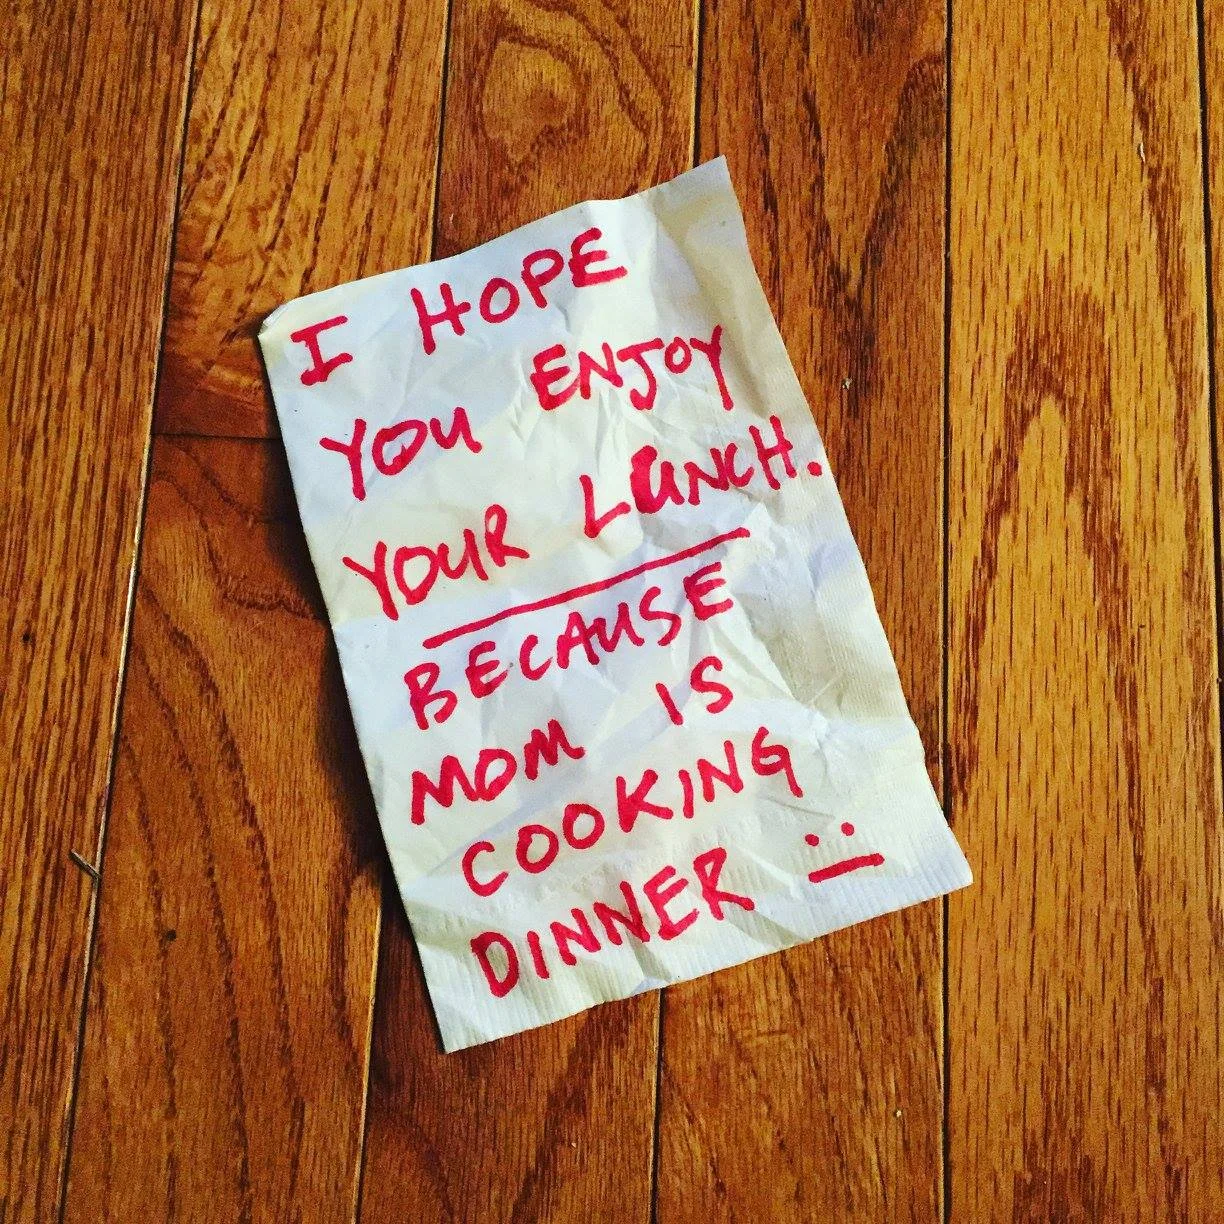 I HOPE
YOU ENJOY
YOUR LUNCH.
BECAUSE
MOM IS
COOKING
DINNER :|